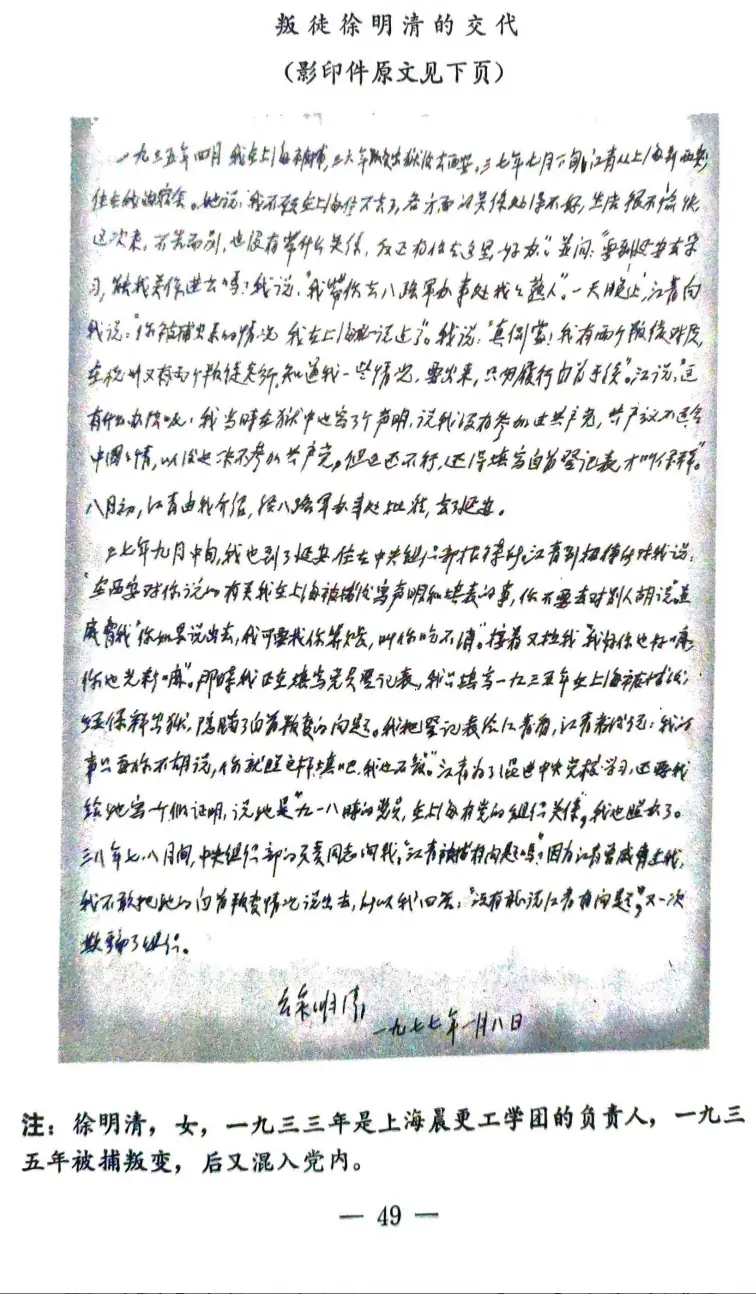 叛徒徐明清的交代
（影印件原文见下页）
一九三五年四月我在上海被捕，三六年出狱后去西安。三七年七月下旬，江青从上海到西安，
住在我的宿舍。她说：“我不愿在上海住下去了，各方面的关系处得不好，生活很不愉快
这次来，不告而别，也没有带什么关系，反正有你在这里，好办。”并问：“要到延安去学
习，能找关系进去吗？”我说：“我带你去八路军办事处找人。”一天晚上，江青向
我说：“你被捕出来的情况 我在上海听说过了。”我说：“真倒霉！我有两个叛徒对质，
在杭州又有两个叛徒知道我一些情况，要出来，只有履行自首手续”。江说：“这
有什么办法呢，我当时在狱中也写了个声明，说我没有参加过共产党，共产主义不适合
中国国情，以后也决不参加共产党。但这还不行，还得填写自首登记表才叫保释。”
八月初，江青由我介绍，经八路军办事处批准，去了延安。
三七年九月中旬，我也到了延安 住在中央组织部招待所，江青到招待所对我说：
“在西安对你说的有关我在上海被捕后写声明和填表的事，你不要去对别人胡说。”并
威胁我“你如果说出去，我可要找你算账，叫你吃不消”。接着又拉我“我好你也好嘛
你也光彩嘛”。那时我正在填写党员登记表，我只填写一九三五年在上海被捕后
经保释出狱，隐瞒了自首叛变的问题。我把登记表给江青看，江青看后说：“我的
事只要你不胡说，你就照这样填吧，我也不说。”江青为了混进中央党校学习，还要我
给她写一个假证明，说她是“九一八时的党员，在上海有党的组织关系”，我也照办了。
三八年七、八月间，中央组织部的负责同志问我，“江青被捕有问题吗？”因为江青曾威胁过我，
我不敢把她的自首叛变情况说出去，所以我回答：“没有听说江青有问题”，又一次
欺骗了组织。
徐明清
一九七七年一月八日
注：徐明清，女，一九三三年是上海晨更工学团的负责人，一九三
五年被捕叛变，后又混入党内。
— 49 —